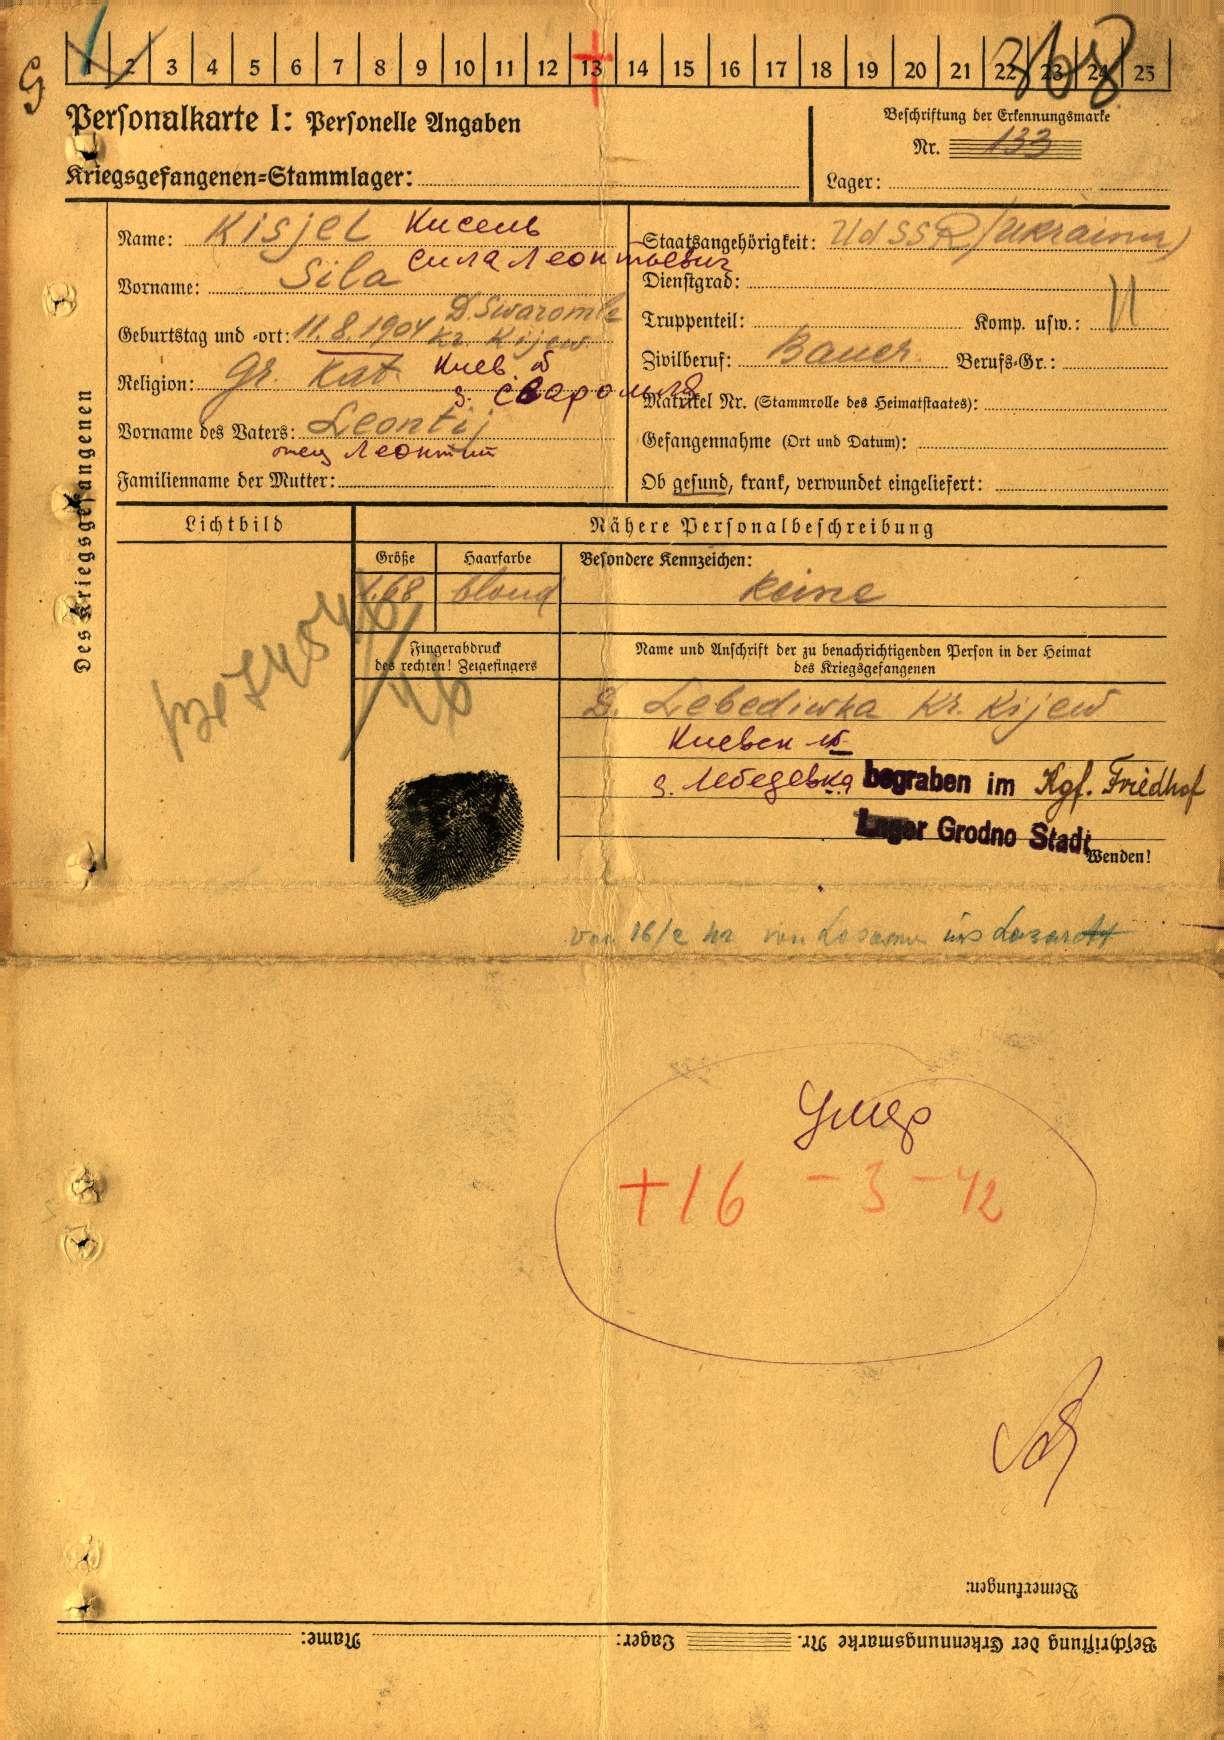 G
1 2 3 4 5 6 7 8 9 10 11 12 13 14 15 16 17 18 19 20 21 22 23 24 25
368
Personalkarte I: Personelle Angaben
Beschriftung der Erkennungsmarke
Nr. 133
Kriegsgefangenen-Stammlager:
Lager:
Des Kriegsgefangenen
Name: Kisjel Кисель
Сила Леонтьевич
Vorname: Sila
Geburtstag und -ort: 11.8.1904 D. Swaromle
Kr. Kijew
Religion: Gr. Kat. Киев. об
д. Сваромля
Vorname des Vaters: Leontij
отец Леонтий
Familienname der Mutter:
Staatsangehörigkeit: UdSSR (Ukrainer)
Dienstgrad:
Truppenteil: Komp. usw.:
Zivilberuf: Bauer Berufs-Gr.:
Matrikel Nr. (Stammrolle des Heimatstaates):
Gefangennahme (Ort und Datum):
Ob gesund, krank, verwundet eingeliefert:
Lichtbild
Nähere Personalbeschreibung
Größe Haarfarbe Besondere Kennzeichen:
1.68 blond keine
Fingerabdruck
des rechten! Zeigefingers
Name und Anschrift der zu benachrichtigenden Person in der Heimat
des Kriegsgefangenen
D. Lebediwka Kr. Kijew
Киевск об
д. Лебедевка
begraben im Kgf. Friedhof
Lager Grodno Stadt
Wenden!
16/2 von ins Lazarett
Умер
+16-3-42
Bemerkungen:
Beschriftung der Erkennungsmarke Nr. Lager: Name: